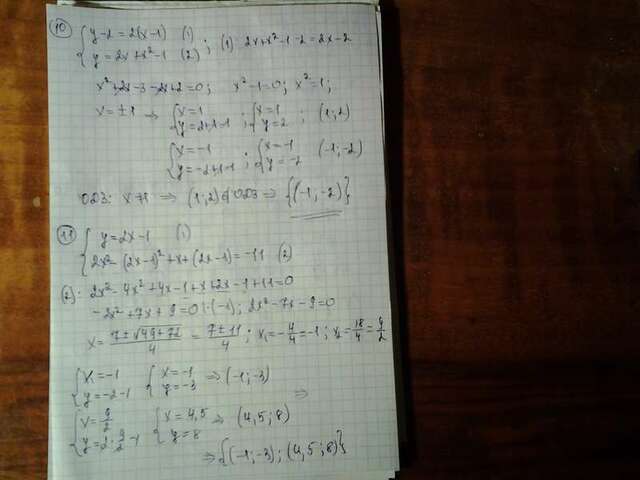 10) { y-2=2(x-1) (1)
{ y=2x+x²-1 (2) ; (1) 2x+x²-1-2=2x-2
x²+2x-3-2x+2=0; x²-1=0; x²=1;
x=±1 ⇒ { x=1 ; { x=1 ; (1;2)
{ y=2+1-1 { y=2
{ x=-1 ; { x=-1 (-1;-2)
{ y=-2+1-1 { y=-2
ОДЗ: x≠1 ⇒ (1;2)∉ОДЗ ⇒ {(-1;-2)}
11) { y=2x-1 (1)
{ 2x²-(2x-1)²+x+(2x-1)=-11 (2)
(2): 2x²-4x²+4x-1+x+2x-1+11=0
-2x²+7x+9=0 |:(-1); 2x²-7x-9=0
x= (7±√49+72)/4 = (7±11)/4 ; x₁=-4/4=-1; x₂=18/4=9/2
{ x=-1 { x=-1 ⇒ (-1;-3)
{ y=-2-1 { y=-3 ⇒
{ x=9/2 { x=4,5 ⇒ (4,5;8)
{ y=2·9/2-1 { y=8
⇒{(-1;-3);(4,5;8)}